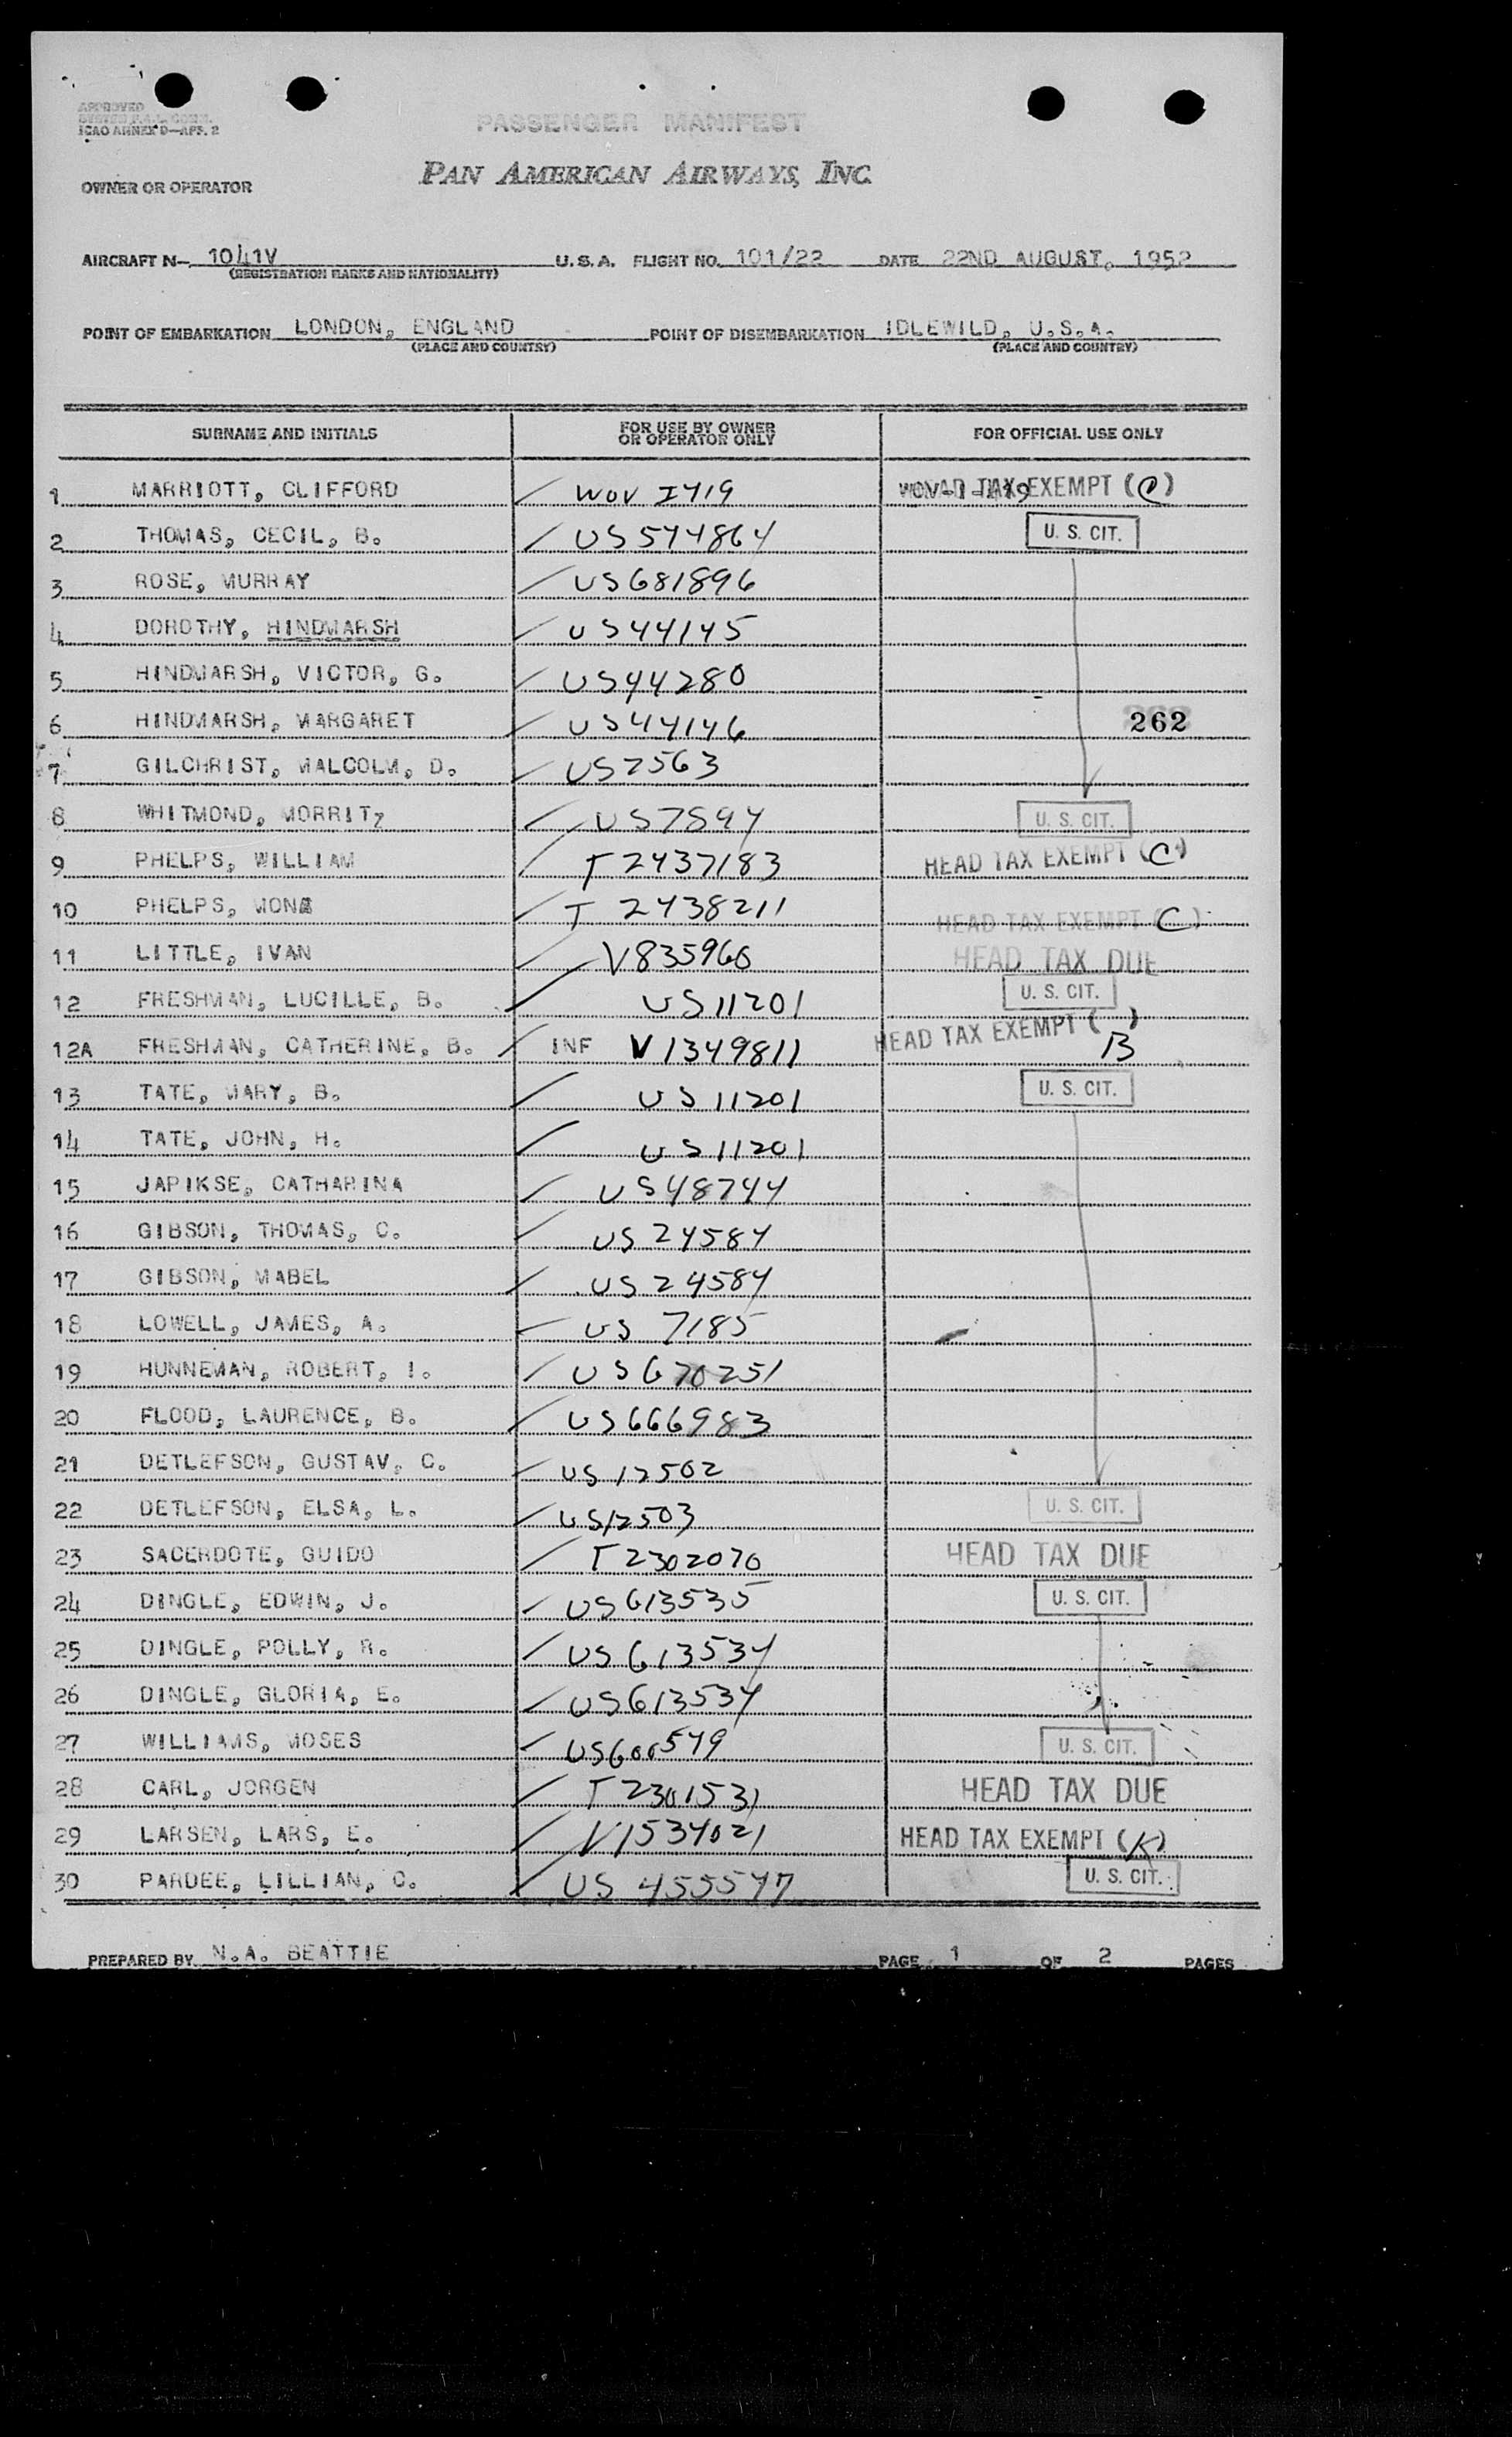 APPROVED
ICAO ANNEX 9—APP. 2
PASSENGER MANIFEST
OWNER OR OPERATOR PAN AMERICAN AIRWAYS, INC.
AIRCRAFT N— 1041V U.S.A. FLIGHT NO. 101/22 DATE 22ND AUGUST, 1952
(REGISTRATION MARKS AND NATIONALITY)
POINT OF EMBARKATION LONDON, ENGLAND POINT OF DISEMBARKATION IDLEWILD, U.S.A.
(PLACE AND COUNTRY) (PLACE AND COUNTRY)
SURNAME AND INITIALS FOR USE BY OWNER OR OPERATOR ONLY FOR OFFICIAL USE ONLY
1 MARRIOTT, CLIFFORD WOV I419 TAX EXEMPT (C)
2 THOMAS, CECIL, B. US 544864 U. S. CIT.
3 ROSE, MURRAY US 681896
4 DOROTHY, HINDMARSH US 44145
5 HINDMARSH, VICTOR, G. US 44280
6 HINDMARSH, MARGARET US 44146 262
7 GILCHRIST, MALCOLM, D. US 2563
8 WHITMOND, MORRITZ US 7594 U. S. CIT.
9 PHELPS, WILLIAM T 2437183 HEAD TAX EXEMPT (C)
10 PHELPS, MONA T 2438211 HEAD TAX EXEMPT (C)
11 LITTLE, IVAN V835966 HEAD TAX DUE
12 FRESHMAN, LUCILLE, B. US 11201 U. S. CIT.
12A FRESHMAN, CATHERINE, B. INF V 1349811 HEAD TAX EXEMPT ( ) B
13 TATE, MARY, B. US 11201 U. S. CIT.
14 TATE, JOHN, H. US 11201
15 JAPIKSE, CATHARINA US 48744
16 GIBSON, THOMAS, C. US 24584
17 GIBSON, MABEL US 24584
18 LOWELL, JAMES, A. US 7185
19 HUNNEMAN, ROBERT, I. US 670251
20 FLOOD, LAURENCE, B. US 666983
21 DETLEFSON, GUSTAV, C. US 12502
22 DETLEFSON, ELSA, L. US 12503 U. S. CIT.
23 SACERDOTE, GUIDO T 2302070 HEAD TAX DUE
24 DINGLE, EDWIN, J. US 613535 U. S. CIT.
25 DINGLE, POLLY, R. US 613534
26 DINGLE, GLORIA, E. US 613534
27 WILLIAMS, MOSES US 600549 U. S. CIT.
28 CARL, JORGEN T 2301531 HEAD TAX DUE
29 LARSEN, LARS, E. V1534021 HEAD TAX EXEMPT (K)
30 PARDEE, LILLIAN, C. US 455547 U. S. CIT.
PREPARED BY N.A. BEATTIE PAGE 1 OF 2 PAGES